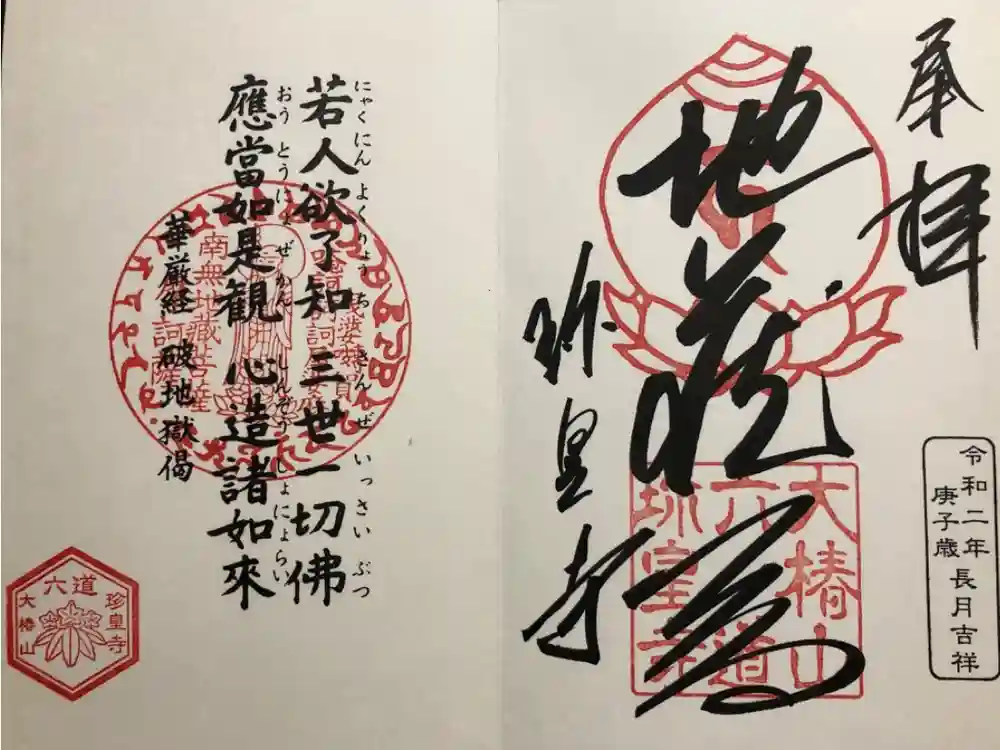 奉拝
地蔵尊
珎皇寺
大椿山
六道
珎皇寺
令和二年 長月吉祥
庚子歳
若人欲了知 三世一切佛
にゃくにん よくりょうち さんぜ いっさいぶつ
應當如是観 心造諸如來
おうとうにょ ぜかん しんぞうしょにょらい
華厳経 破地獄偈
南無地藏菩薩
六道
珍皇寺
大椿山